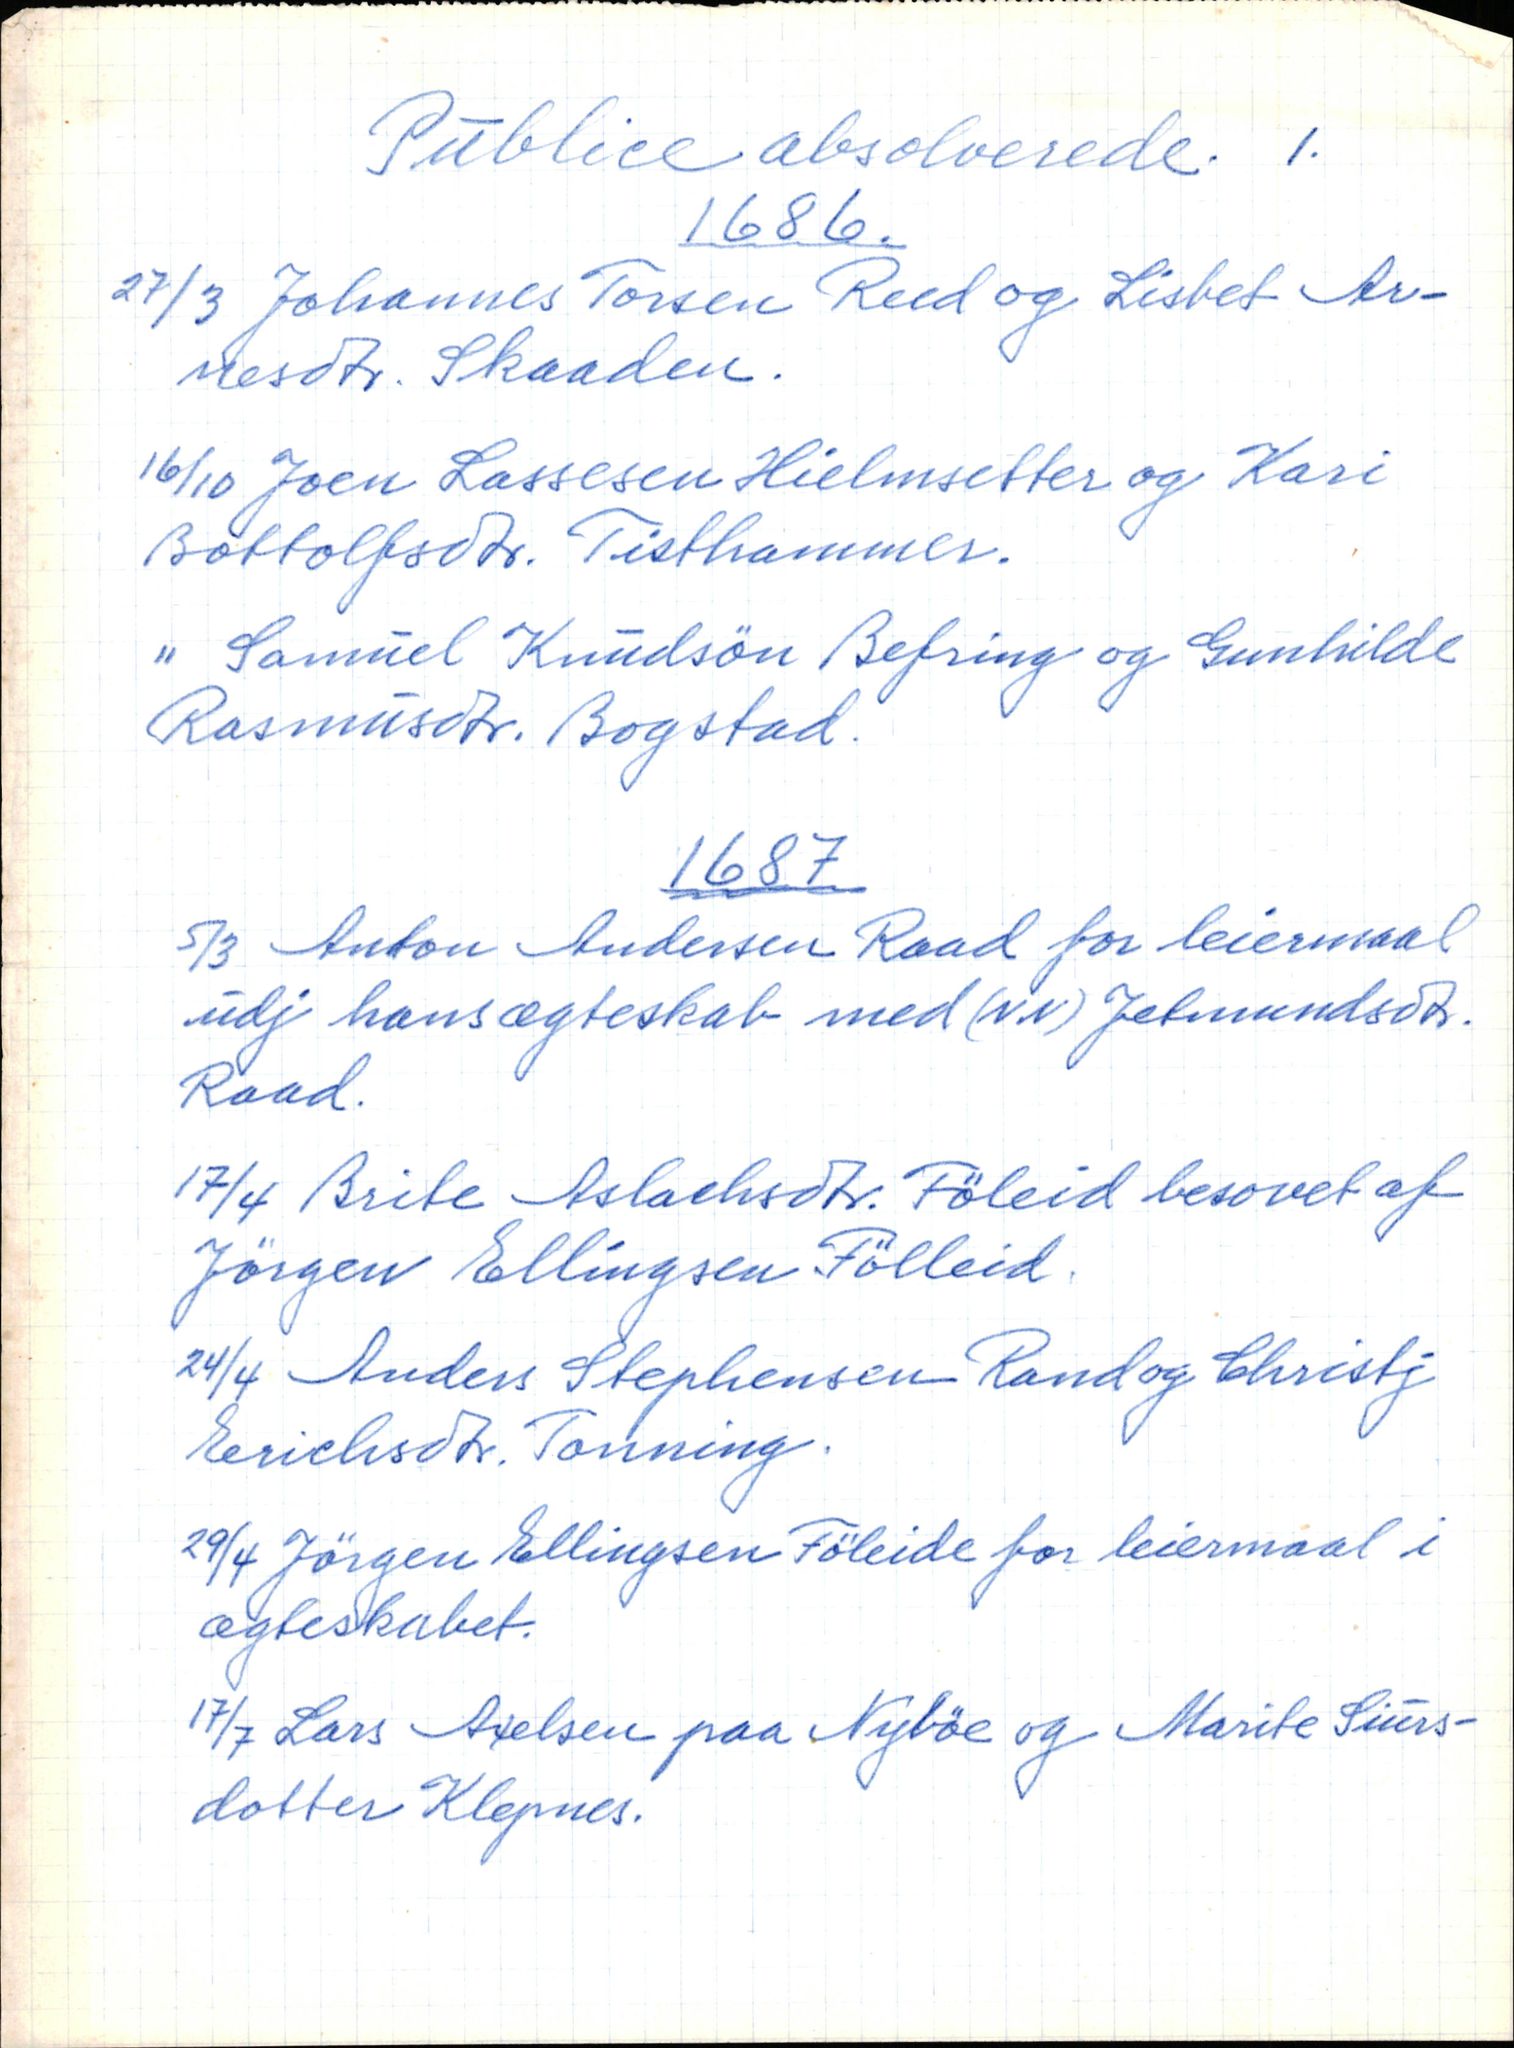 Publice absolverede. 1.
1686.
27/3 Johannes Torsen Reed og Lisbet Ar-
nesdtr. Skaaden.
16/10 Joen Lassesen Hielmsetter og Kari
Bottolfsdtr. Tisthammer.
" Samuel Knudsön Befring og Gunhilde
Rasmusdtr. Bogstad.
1687
5/3 Anton Andersen Raad for leiermaal
udj hans ægteskab med (N.N) Jetmundsdtr.
Raad.
17/4 Brite Aslachsdtr. Föleid besovet af
Jörgen Ellingsen Fölleid.
24/4 Anders Stephensen Rand og Christj
Eerichsdtr. Tonning.
29/4 Jörgen Ellingsen Föleide for leiermaal i
ægteskabet.
17/7 Lars Axelsen paa Nyböe og Marite Siurs-
dotter Klepnes.